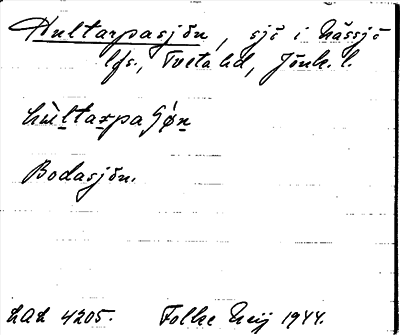 Hultarpasjön, sjö i Nässjö
lfs., Tveta hd, Jönk. l.
hùltarpaʃǿn
Bodasjön.
LAL 4205. Folke Meij 1944.